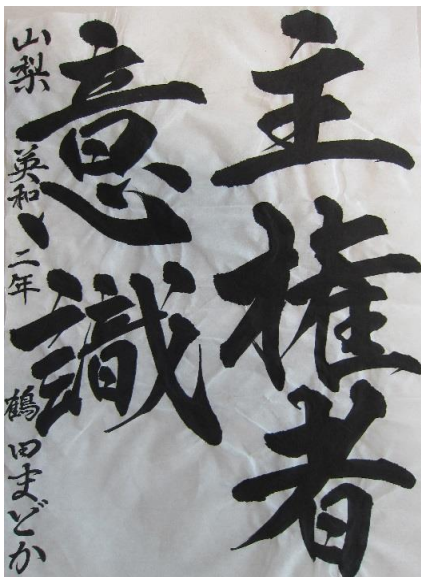 主権者
意識
山梨 英和 二年 鶴田まどか